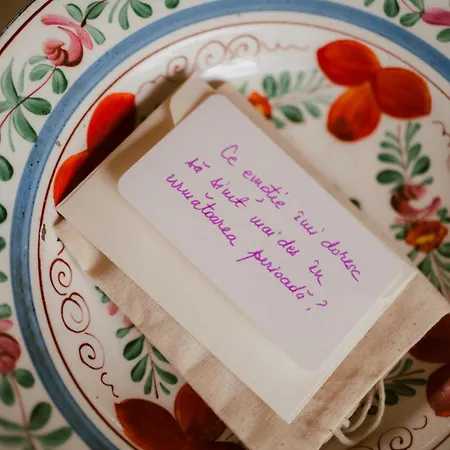 Ce emoție îmi doresc
să simt mai des în
următoarea perioadă?